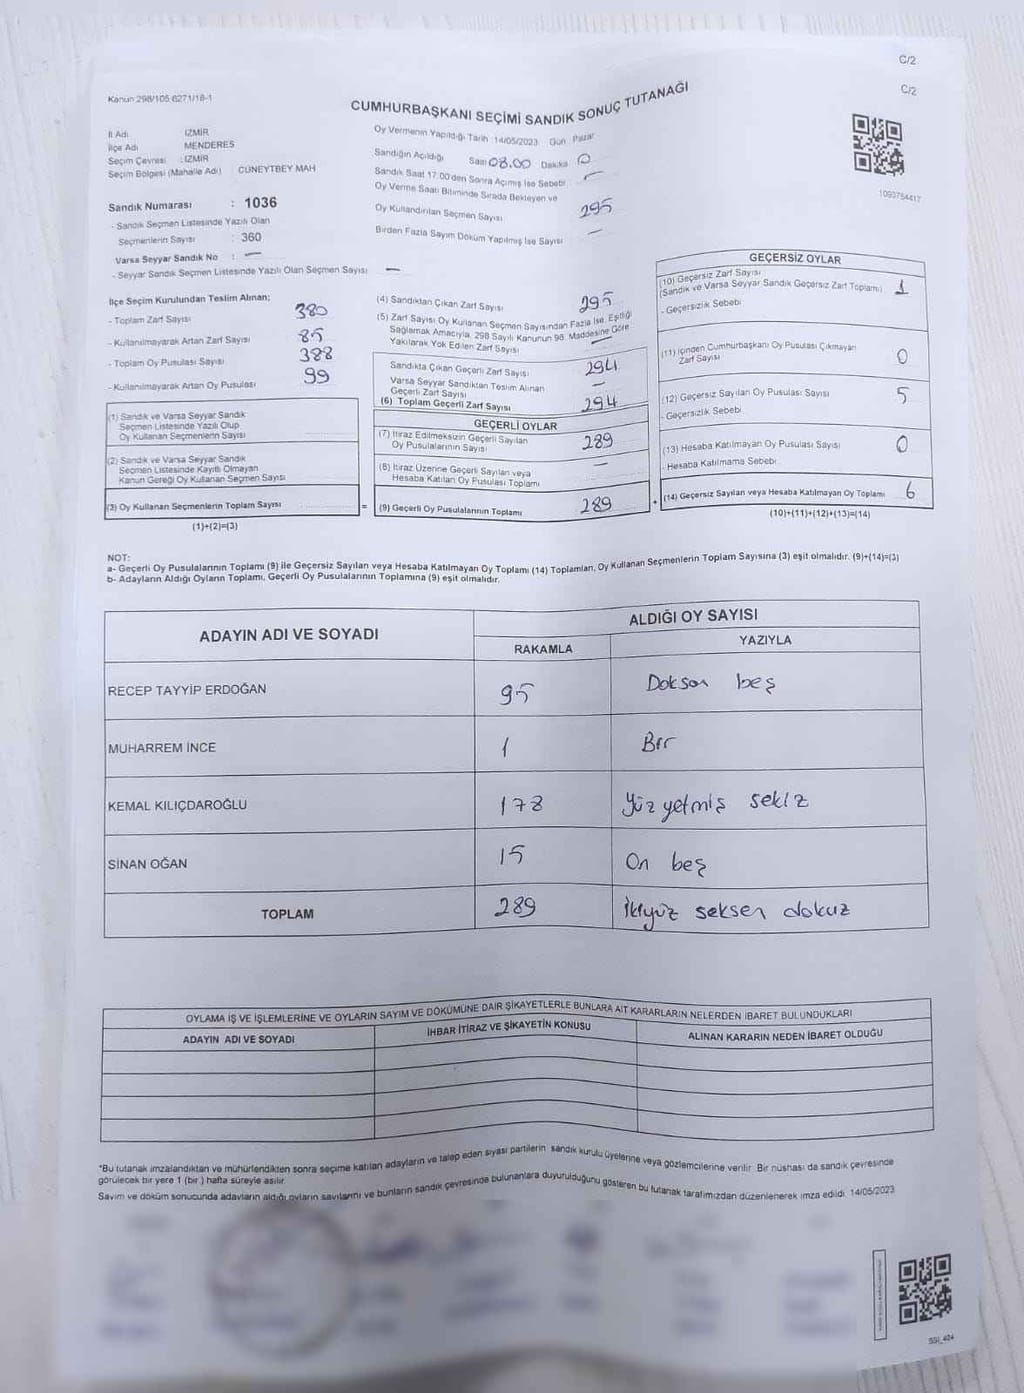 C/2
C/2
Kanun 298/105 6271/18-1
CUMHURBAŞKANI SEÇİMİ SANDIK SONUÇ TUTANAĞI
İl Adı İZMİR
İlçe Adı MENDERES
Seçim Çevresi : İZMİR
Seçim Bölgesi (Mahalle Adı) CÜNEYTBEY MAH
Sandık Numarası : 1036
- Sandık Seçmen Listesinde Yazılı Olan
Seçmenlerin Sayısı : 360
Varsa Seyyar Sandık No : —
- Seyyar Sandık Seçmen Listesinde Yazılı Olan Seçmen Sayısı —
Oy Vermenin Yapıldığı Tarih 14/05/2023 Gün Pazar
Sandığın Açıldığı Saat 08.00 Dakika 0
Sandık Saat 17:00'den Sonra Açımış İse Sebebi —
Oy Verme Saati Bitiminde Sırada Bekleyen ve
Oy Kullandırılan Seçmen Sayısı 295
Birden Fazla Sayım Döküm Yapılmış İse Sayısı —
1093754417
İlçe Seçim Kurulundan Teslim Alınan;
- Toplam Zarf Sayısı 380
- Kullanılmayarak Artan Zarf Sayısı 85
- Toplam Oy Pusulası Sayısı 388
- Kullanılmayarak Artan Oy Pusulası 99
(1) Sandık ve Varsa Seyyar Sandık
Seçmen Listesinde Yazılı Olup
Oy Kullanan Seçmenlerin Sayısı
(2) Sandık ve Varsa Seyyar Sandık
Seçmen Listesinde Kayıtlı Olmayan
Kanun Gereği Oy Kullanan Seçmen Sayısı
(3) Oy Kullanan Seçmenlerin Toplam Sayısı =
(1)+(2)=(3)
(4) Sandıktan Çıkan Zarf Sayısı 295
(5) Zarf Sayısı Oy Kullanan Seçmen Sayısından Fazla İse, Eşitliği
Sağlamak Amacıyla, 298 Sayılı Kanunun 98. Maddesine Göre
Yakılarak Yok Edilen Zarf Sayısı —
Sandıkta Çıkan Geçerli Zarf Sayısı 294
Varsa Seyyar Sandıktan Teslim Alınan
Geçerli Zarf Sayısı —
(6) Toplam Geçerli Zarf Sayısı 294
GEÇERLİ OYLAR
(7) İtiraz Edilmeksizin Geçerli Sayılan
Oy Pusulalarının Sayısı 289
(8) İtiraz Üzerine Geçerli Sayılan veya
Hesaba Katılan Oy Pusulası Toplamı —
(9) Geçerli Oy Pusulalarının Toplamı 289 +
GEÇERSİZ OYLAR
(10) Geçersiz Zarf Sayısı
(Sandık ve Varsa Seyyar Sandık Geçersiz Zarf Toplamı) 1
- Geçersizlik Sebebi
(11) İçinden Cumhurbaşkanı Oy Pusulası Çıkmayan
Zarf Sayısı 0
(12) Geçersiz Sayılan Oy Pusulası Sayısı 5
- Geçersizlik Sebebi
(13) Hesaba Katılmayan Oy Pusulası Sayısı 0
- Hesaba Katılmama Sebebi
(14) Geçersiz Sayılan veya Hesaba Katılmayan Oy Toplamı 6
(10)+(11)+(12)+(13)=(14)
NOT:
a- Geçerli Oy Pusulalarının Toplamı (9) ile Geçersiz Sayılan veya Hesaba Katılmayan Oy Toplamı (14) Toplamları, Oy Kullanan Seçmenlerin Toplam Sayısına (3) eşit olmalıdır. (9)+(14)=(3)
b- Adayların Aldığı Oyların Toplamı, Geçerli Oy Pusulalarının Toplamına (9) eşit olmalıdır.
ADAYIN ADI VE SOYADI
ALDIĞI OY SAYISI
RAKAMLA YAZIYLA
RECEP TAYYİP ERDOĞAN 95 Doksan beş
MUHARREM İNCE 1 Bir
KEMAL KILIÇDAROĞLU 178 Yüz yetmiş sekiz
SİNAN OĞAN 15 On beş
TOPLAM 289 İkiyüz seksen dokuz
OYLAMA İŞ VE İŞLEMLERİNE VE OYLARIN SAYIM VE DÖKÜMÜNE DAİR ŞİKAYETLERLE BUNLARA AİT KARARLARIN NELERDEN İBARET BULUNDUKLARI
ADAYIN ADI VE SOYADI İHBAR İTİRAZ VE ŞİKAYETİN KONUSU ALINAN KARARIN NEDEN İBARET OLDUĞU
*Bu tutanak imzalandıktan ve mühürlendikten sonra seçime katılan adayların ve talep eden siyasi partilerin sandık kurulu üyelerine veya gözlemcilerine verilir. Bir nüshası da sandık çevresinde
görülecek bir yere 1 (bir ) hafta süreyle asılır.
Sayım ve döküm sonucunda adayların aldığı oyların sayılarını ve bunların sandık çevresinde bulunanlara duyurulduğunu gösteren bu tutanak tarafımızdan düzenlenerek imza edildi. 14/05/2023
SSI_404